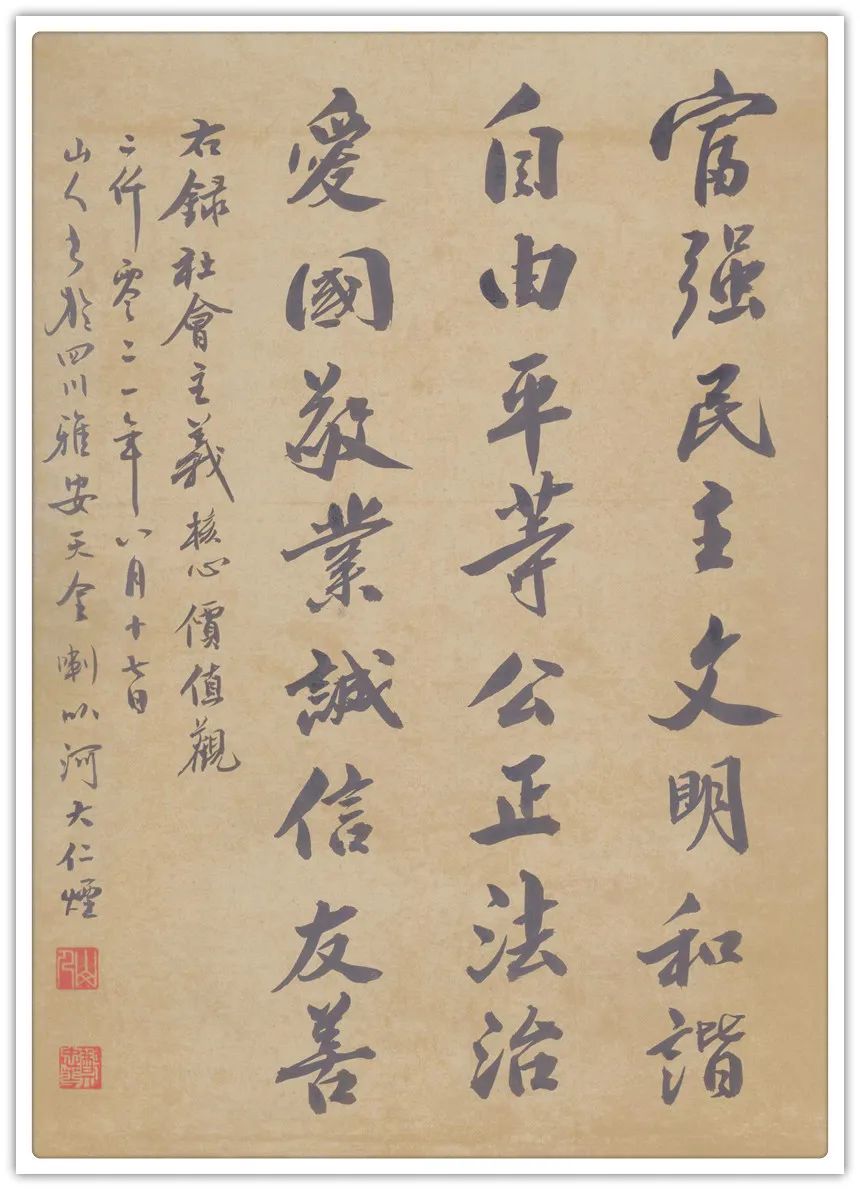 富强民主文明和諧
自由平等公正法治
愛國敬業誠信友善
右録社會主義核心價值觀
二仟零二一年八月十七日
山人書於四川雅安天全喇叭河大仁煙
山人